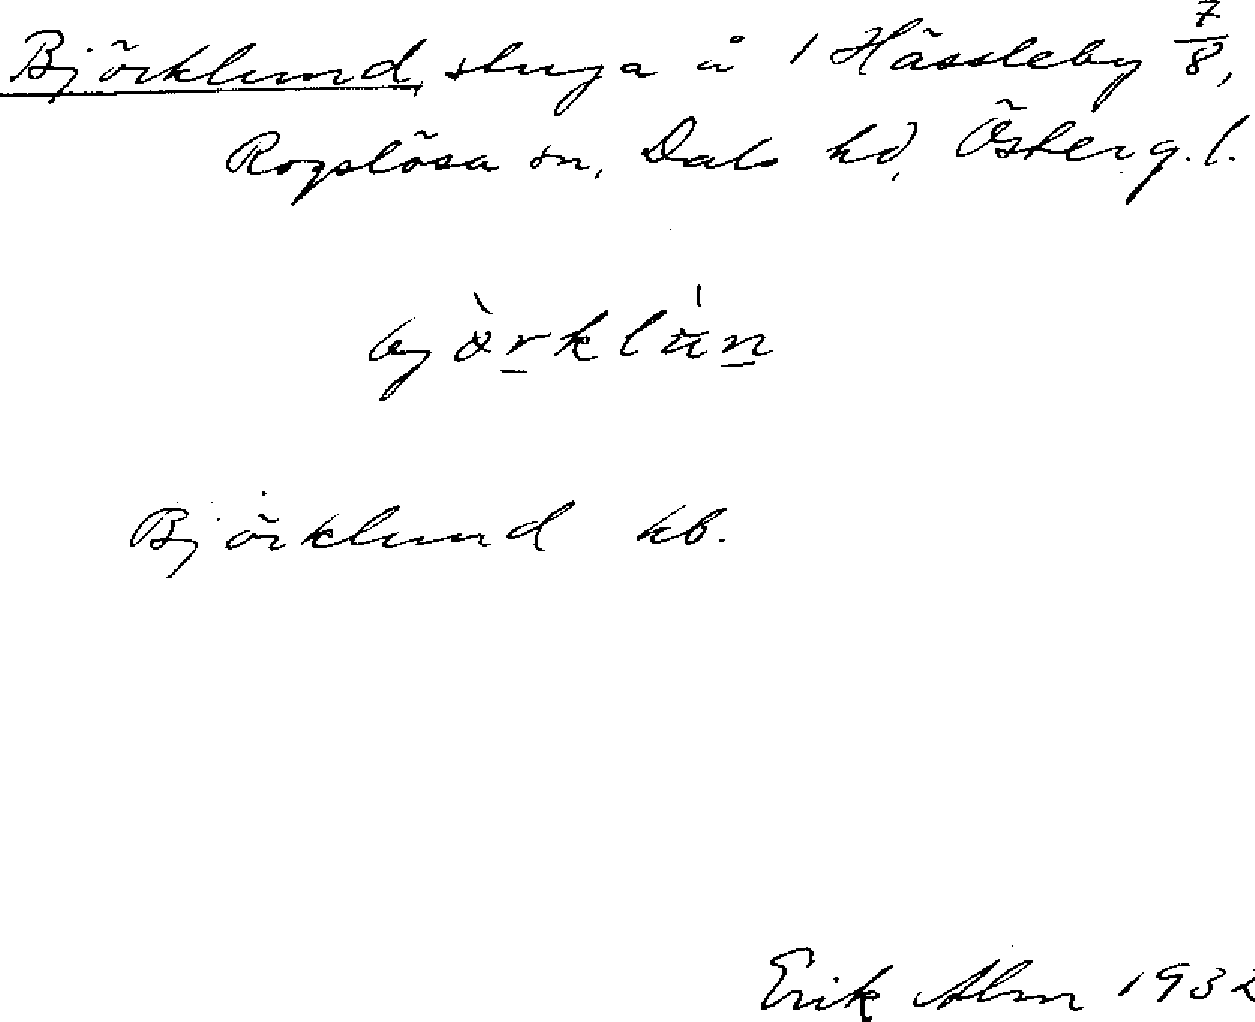 Björklund, stuga å 1 Hässleby 7/8,
Rogslösa sn, Dals hd, Österg. l.
bjὰrklún
Björklund kb.
Erik Alm 1932